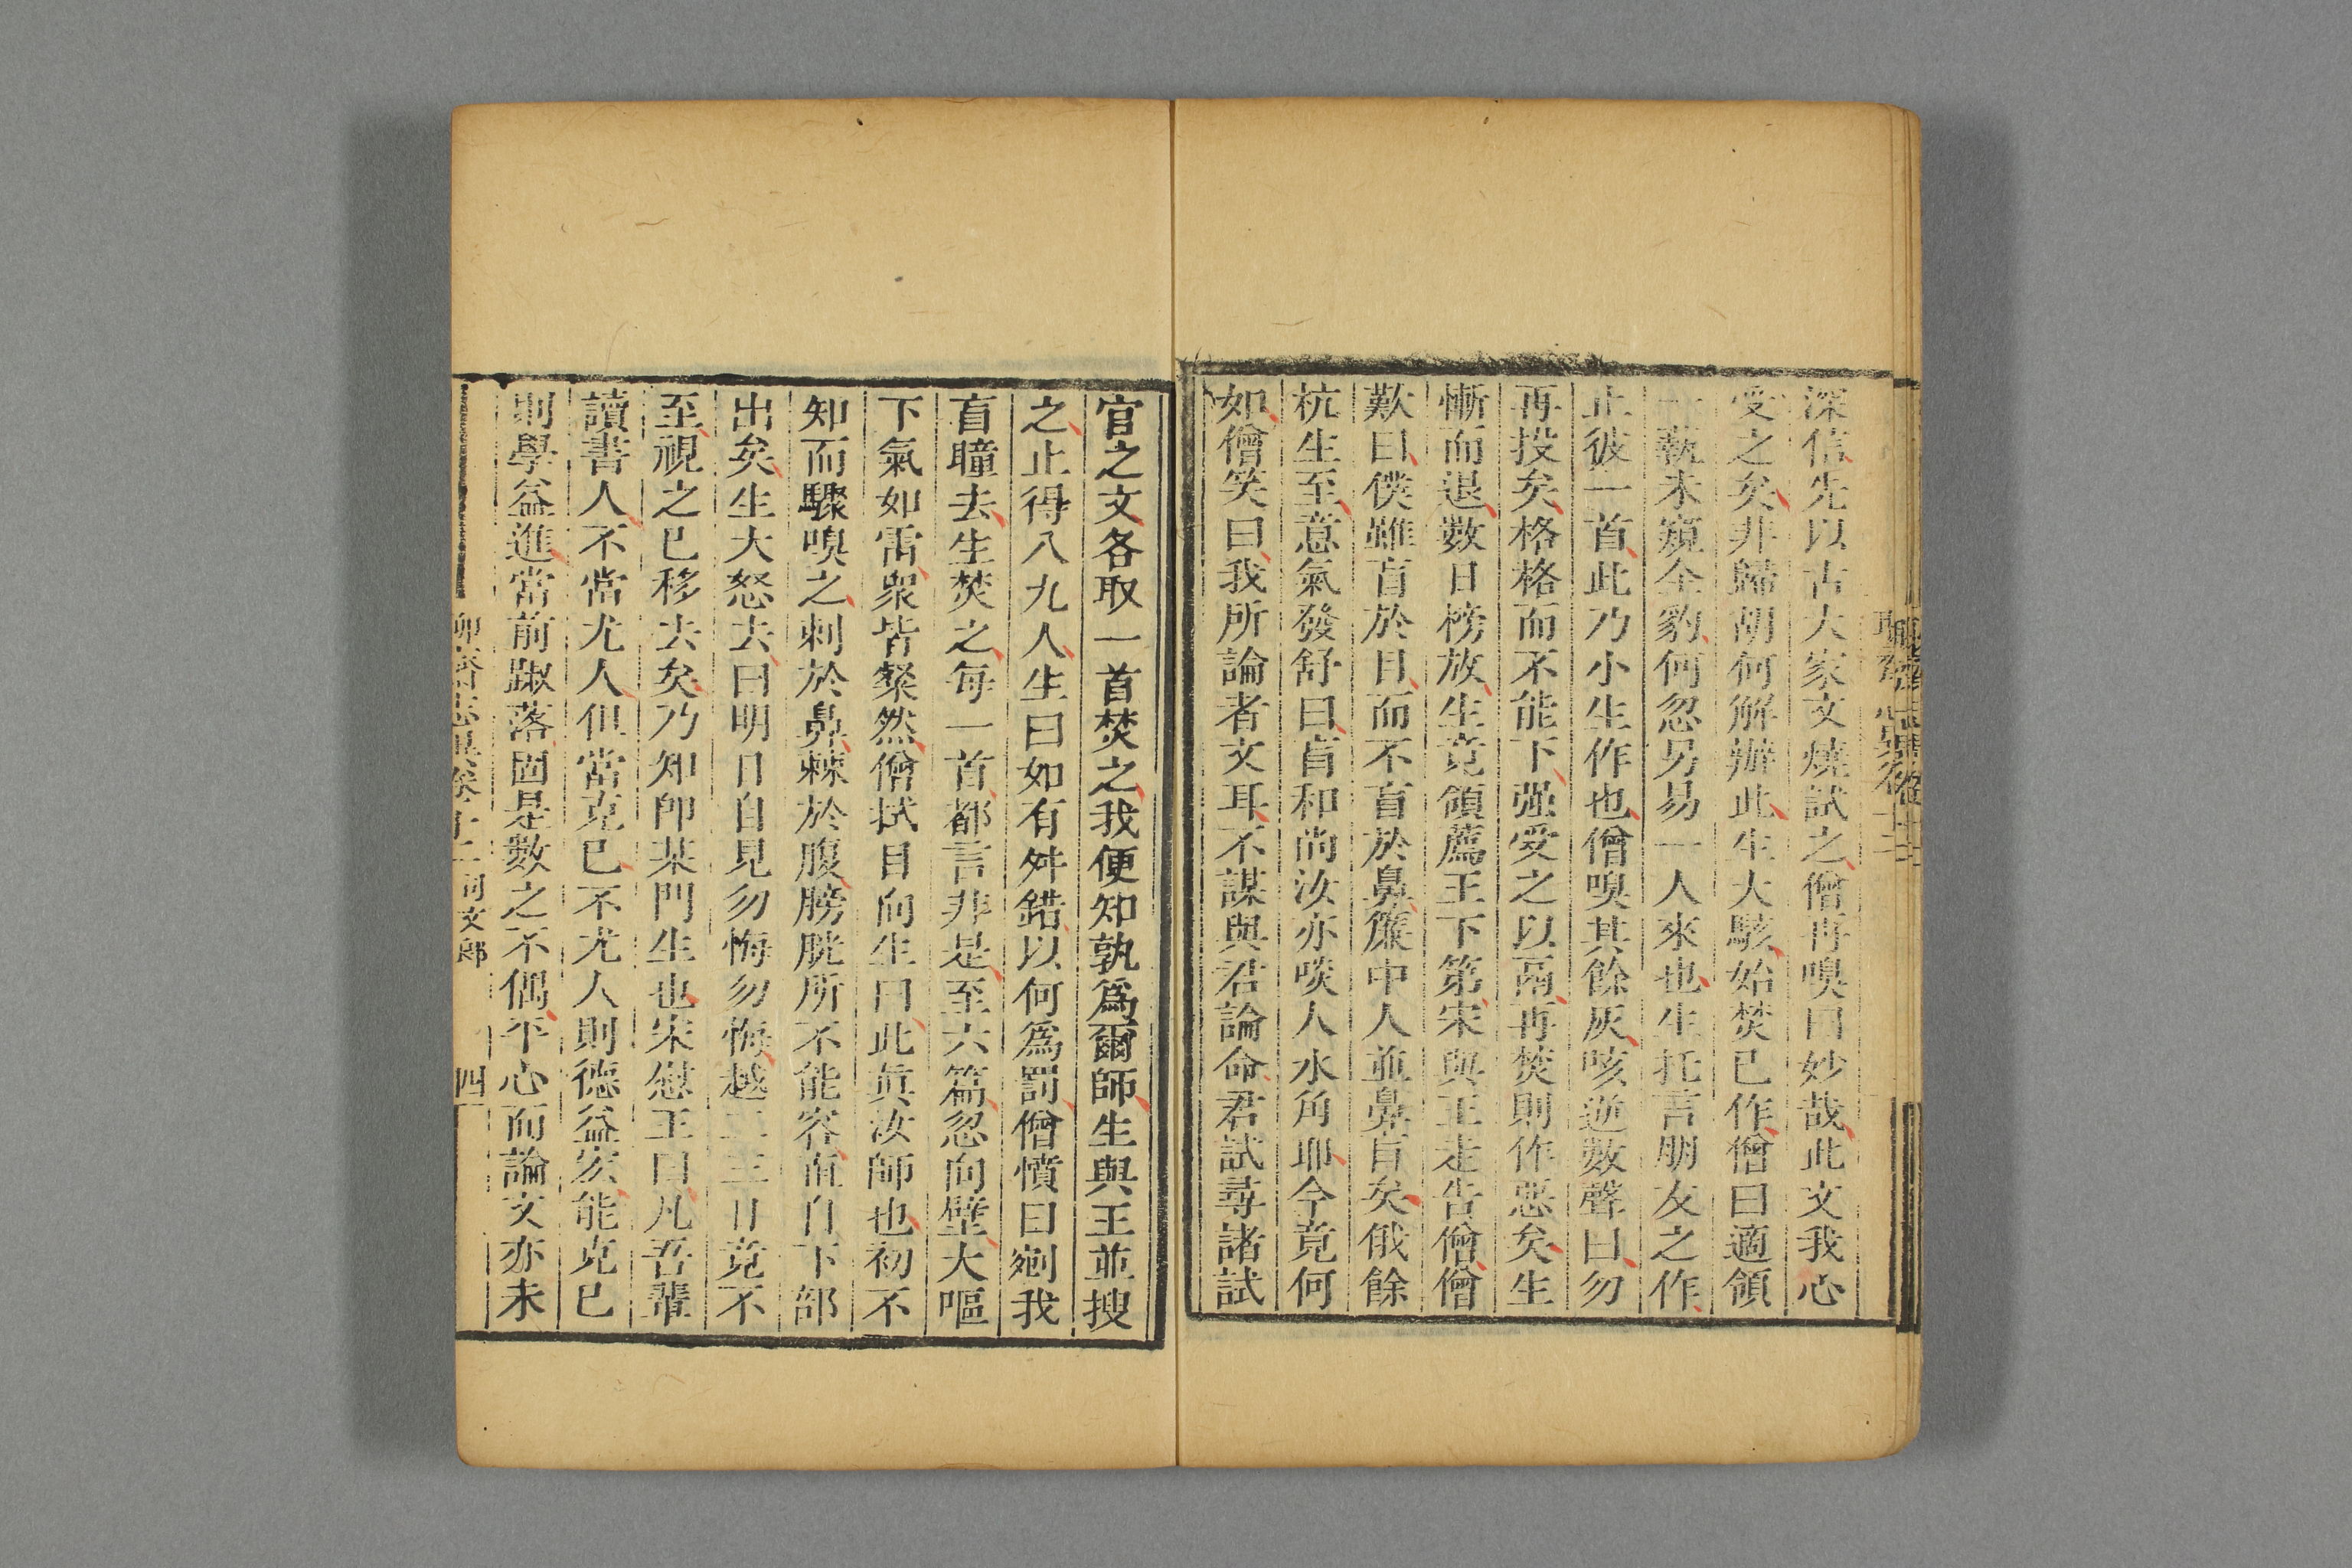 深信先以古大家文燒試之僧再嗅曰妙哉此文我心
受之矣非歸胡何解辦此生大駭始焚已作僧曰適領
一藝未窺全豹何忽另易一人來也生托言朋友之作
止彼一首此乃小生作也僧嗅其餘灰咳逆數聲曰勿
再投矣格格而不能下强受之以鬲再焚則作惡矣生
慚而退數日榜放生竟領薦王下第宋與王走告僧僧
歎曰僕雖盲於目而不盲於鼻簾中人並鼻盲矣俄餘
杭生至意氣發舒曰盲和尚汝亦啖人水角耶今竟何
如僧笑曰我所論者文耳不謀與君論命君試尋諸試
官之文各取一首焚之我便知孰爲爾師生與王並搜
之止得八九人生曰如有舛錯以何爲罰僧憤曰剜我
盲瞳去生焚之每一首都言非是至六篇忽向壁大嘔
下氣如雷衆皆粲然僧拭目向生曰此眞汝師也初不
知而驟嗅之刺於鼻棘於腹膀胱所不能容直自下部
出矣生大怒去曰明日自見勿悔勿悔越二三日竟不
至視之已移去矣乃知卽某門生也宋慰王曰凡吾輩
讀書人不當尤人但當克已不尤人則德益宏能克已
則學益進當前踧落固是數之不偶平心而論文亦未
聊齋志異卷十二 司文郎 四